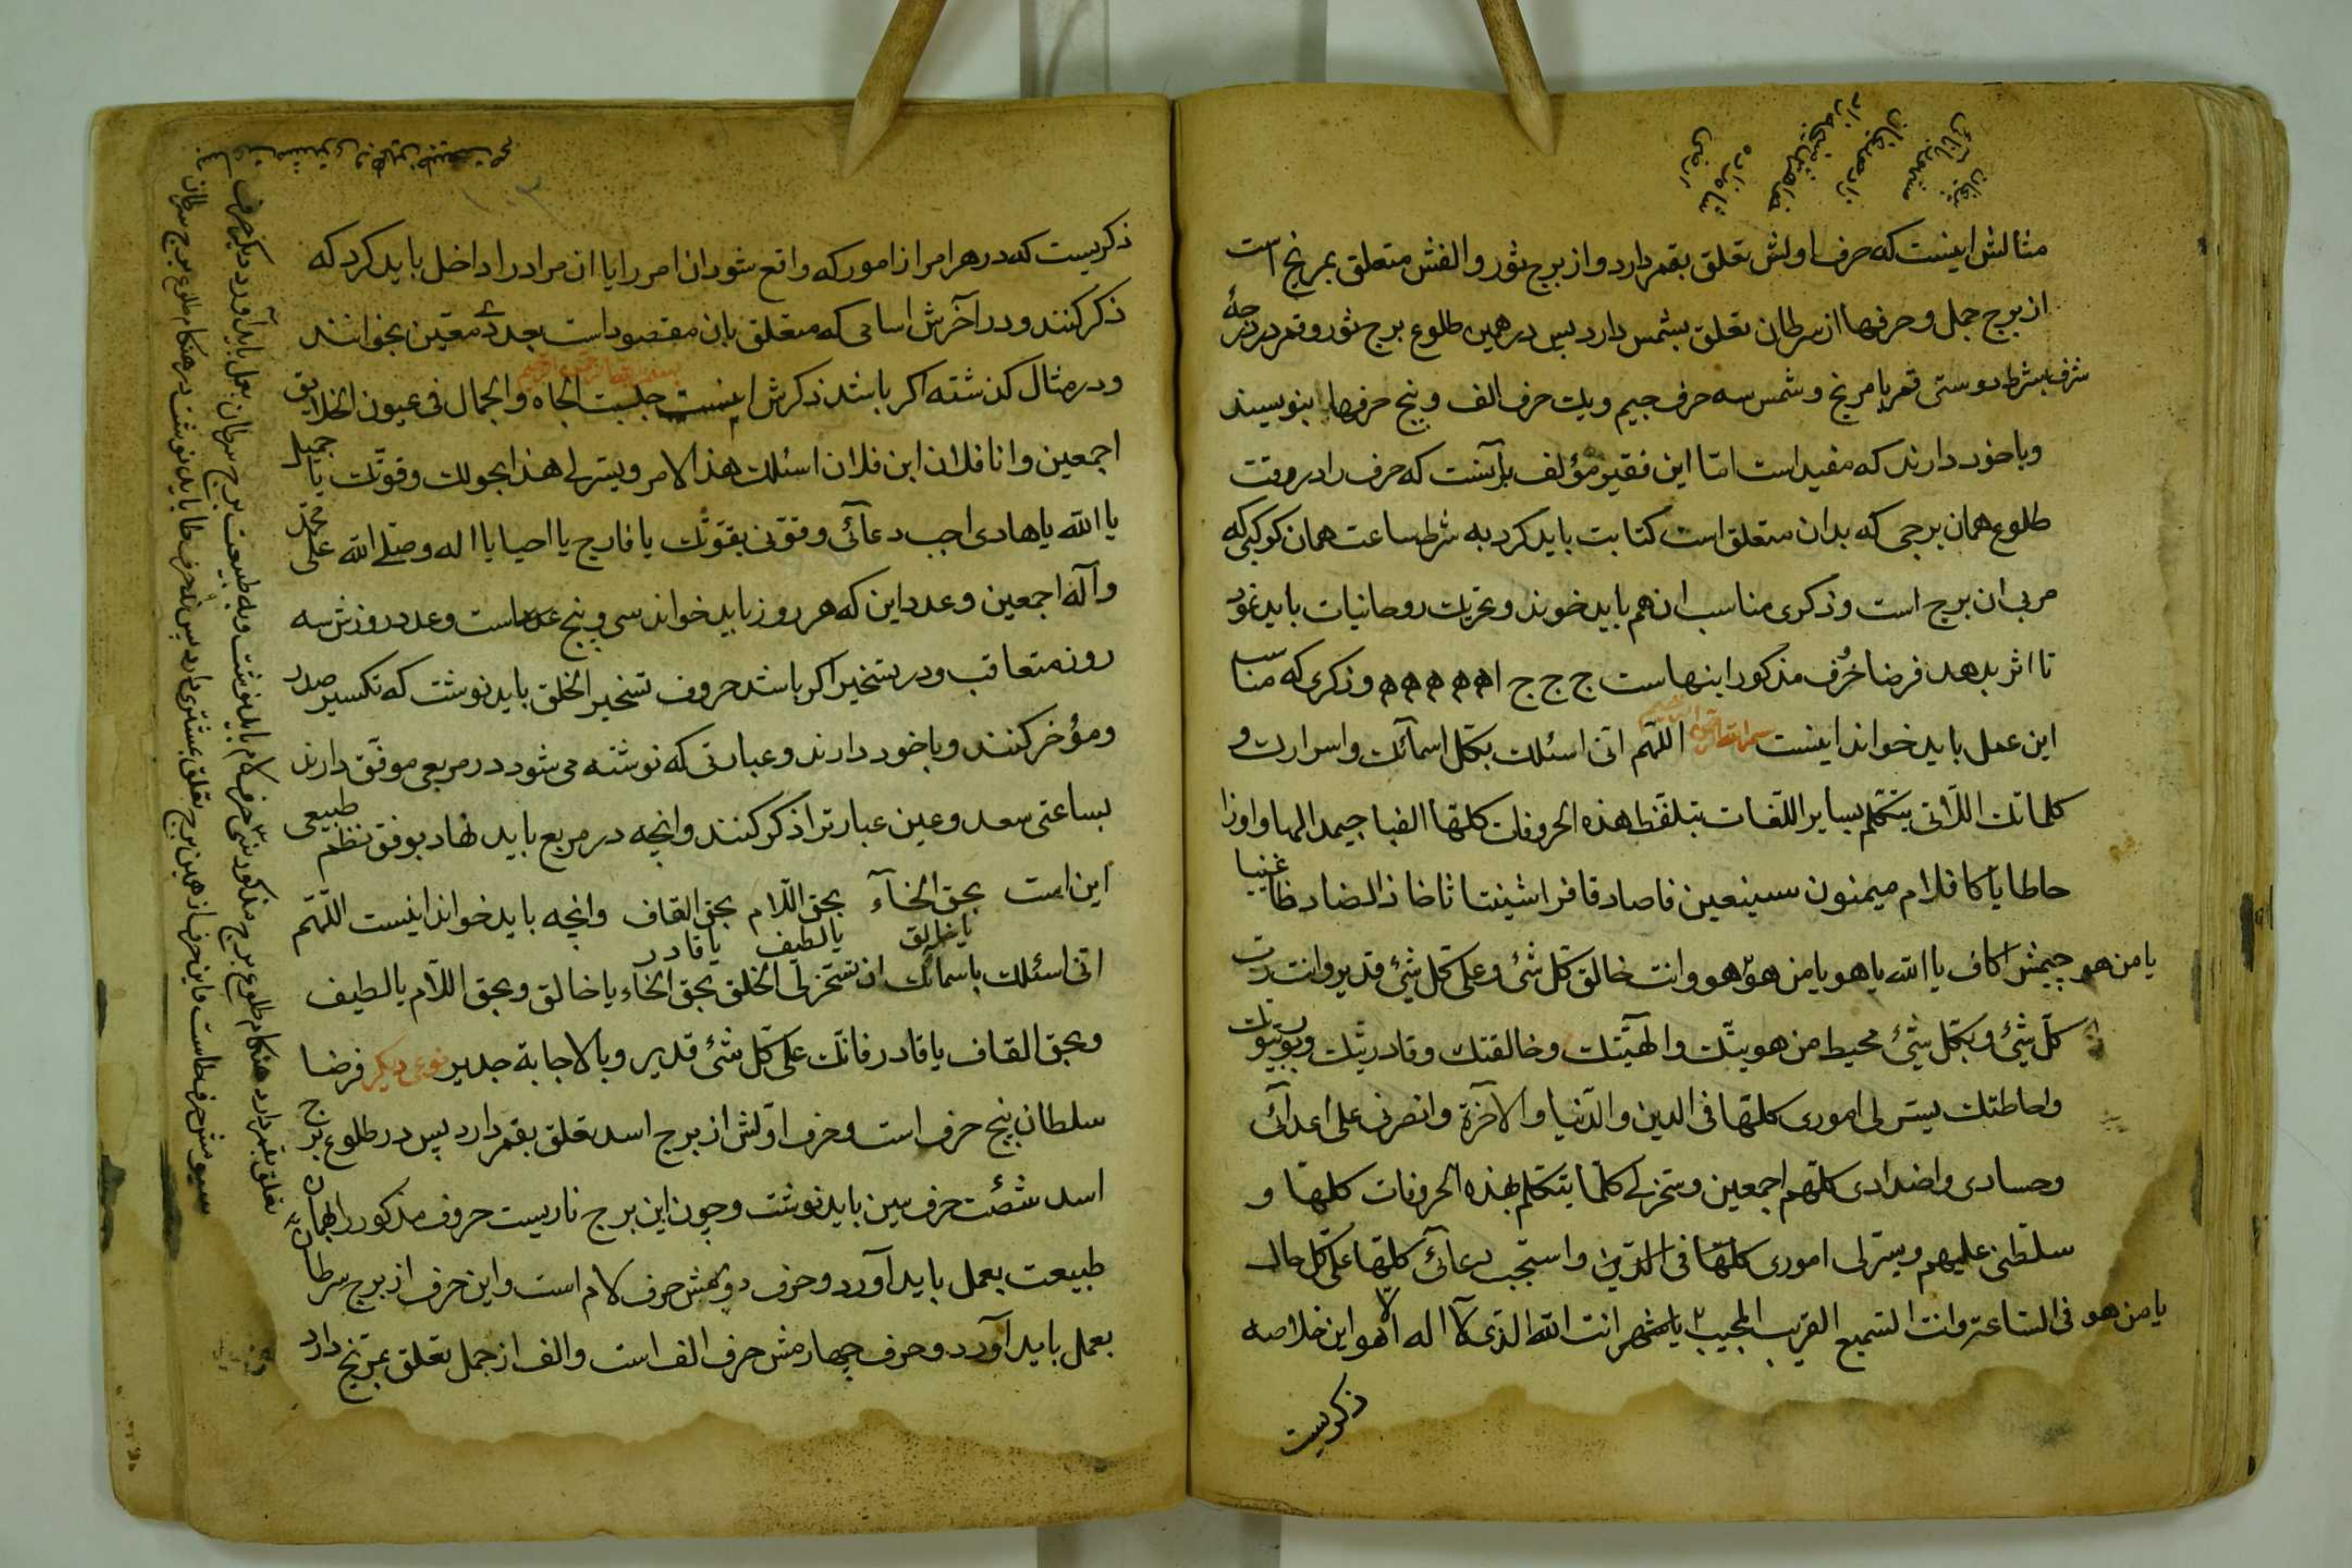 مثالش اینست که حرف اولش تعلق بقمر دارد و از برج ثور و الفش متعلق بمریخ است
از برج حمل و حرفها از سرطان تعلق بشمس دارد پس در همین طلوع برج ثور و قمر در درجهٔ
شرف بشرط دوستی قمر با مریخ و شمس سه حرف جیم و یک حرف الف و پنج حرفها بنویسند
و با خود دارند که مفید است امّا این فقیر مؤلف برآنست که حرف را در وقت
طلوع همان برجی که بدان متعلق است کتابت باید کرد به شرط ساعت همان کوکبی که
مربی ان برج است و ذکری مناسب ان هم باید خوند و تحریک روحانیات باید نمود
تا اثر بدهد فرضا حُرف مذکور اینهاست ج ج ج ا ه ه ه ه ه و ذکری که مناسب
این عمل باید خواند اینست اللّهم انی اسئلک بکل اسمآئک و اسرارک و
کلماتک اللّاتی یتکلم بسایر اللّغات بتلفّظ هذه الحروفات کلها الفبا جیمد الها واوزا
حاطا یا کا فلام میمنون سینعین فاصاد قافرا شینتا ثاخا ذالضاد ظا غنیا
یا من هو چیمش اکاف یا الله یا هو یا من هو هو و انت خالق کل شئ و علی کل شئ قدیر و انت ربّ
کلّ شئ و بکل شئ محیط من هویتک و الهیّتک و خالقتک و قادریتک و ربوبیتک
و احاطتک یسّر لی اموری کلها فی الدین و الدّنیا و الآخرة و انصرنی علی اعدائی
و حسادی و اضدادی کلهم اجمعین و سخر لی کلّما یتکلم بهذه الحروفات کلها و
سلطنی علیهم و یسّر لی اموری کلها فی الدّین و استجب دعآئی کلها علی کل حال
یا من هو فی الساعتر و انت السّمیع القریب المجیب انت الله الذی لا اله الّا هو این خلاصه
ذکریست
ذکریست که در هر امر از امور که واقع شود ان امر را یا ان مراد را داخل باید کرد که
ذکر کنند و در آخرش اسامی که متعلق بان مقصود است بعددی معین بخوانند
و در مثال کذشته اکر باشد ذکرش اینست جلبت الجاه و الجمال فی عیون الخلایق
اجمعین و انا فلان ابن فلان اسئلک هذا الامر و یسّر لی هذا بحولک و قوّتک یا جمیل
یا الله یا هادی اجب دعآئی و قوّنی بقوّتک یا فارج یا احیا یا اله و صلّی الله علی محمّد
و آله اجمعین و عدد این که هر روز باید خواند سی و پنج عدد است و عدد روزش سه
روز متعاقب و در تسخیر اکر باشد حروف تسخیر الخلق باید نوشت که تکسیر صدر
و مؤخر کنند و با خود دارند و عبارتی که نوشته می شود در مربعی موفّق دارند
بساعتی سعد و عین عبارترا ذکر کنند و انچه در مربع باید نهاد بوفق نظم طبیعی
این است بحق الخآء یا خالق بحق اللّام یا لطیف بحق القاف یا قادر و انچه باید خواند اینست اللّهم
انی اسئلک باسمائک ان تسخر لی الخلق بحق الخاء یا خالق و بحق اللّام یا لطیف
و بحق القاف یا قادر فانّک علی کلّ شئ قدیر و بالاجابة جدیر نوعی دیکر فرضا
سلطان پنج حرف است و حرف اوّلش از برج اسد تعلق بقمر دارد پس در طلوع برج
اسد شصت حرف سین باید نوشت و چون این برج ناریست حروف مذکور را بهمان
طبیعت بعمل باید آورد و حرف دویمش حرف لام است و این حرف از برج سرطان
بعمل باید آورد و حرف چهارمش حرف الف است و الف از حمل تعلق بمریخ دارد
تعلق بقمر دارد هنکام طلوع برج مذکور سی حرف لام باید نوشت و به طبیعت برج سرطان بعمل باید آورد دیکر حرف
سیومش حرف طاست و این حرف از همین برج تعلق بمشتری دارد پس نه حرف طا باید نوشت در هنکام طلوع برج سرطان